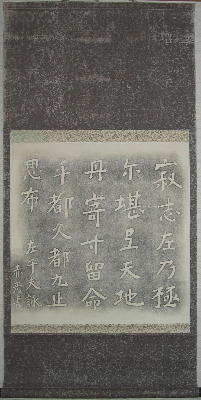 寂志左乃極
尓堪弖天地
丹寄寸留命
乎都久都九止
思布
左千夫詠